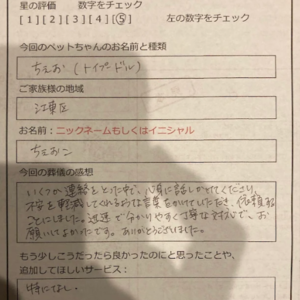 星の評価 数字をチェック
[1][2][3][4][⑤] 左の数字をチェック
今回のペットちゃんのお名前と種類
ちえお(トイプードル)
ご家族様の地域
江東区
お名前:ニックネームもしくはイニシャル
ちえおこ
今回の葬儀の感想
いくつか連絡をとった中で、心身に話しかけてくださり、
不安を軽減してくれるような言葉をかけていただき、依頼する
ことにしました。迅速で分かりやすく丁寧な対応で、お
願いしてよかったです。ありがとうございました。
もう少しこうだったら良かったのにと思ったことや、
追加してほしいサービス:
特になし。